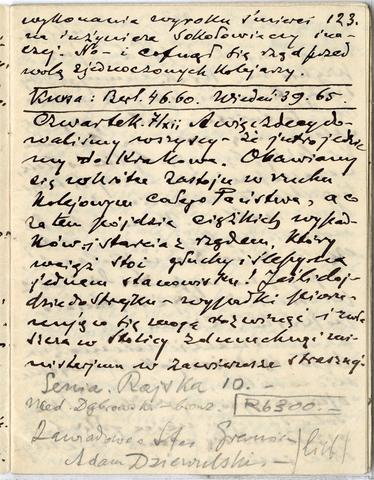 wykonania wyroku śmierci 123.
na inżyniera Sokołowiczy ina-
czej. No - i cofnął się rząd przed
wolą zjednoczonych kolejarzy.
Kursa: Berl. 46.60. Wiedeń 39.65.
Czwartek. 7/XII A więc zdecydo-
waliśmy wszyscy - że jutro jedzie-
my do Krakowa. Obawiamy
się wkrótce zastoju w ruchu
kolejowym całego Państwa, a co
za tem pójdzie ciężkich wypad-
ków, starcia z rządem, który
wciąż stoi głuchy i ślepy na
jednem stanowisku! Jeśli doj-
dzie do strejku - wypadki
się mogą rozwinąć i
w stolicy zdmuchnąć mi-
nisterjum w zawierusze strasznej.
Senia. Rajska 10. -
Med. Dąbrowski - R6300.-
Zawiadowca Stas
Adam Dziewulski -